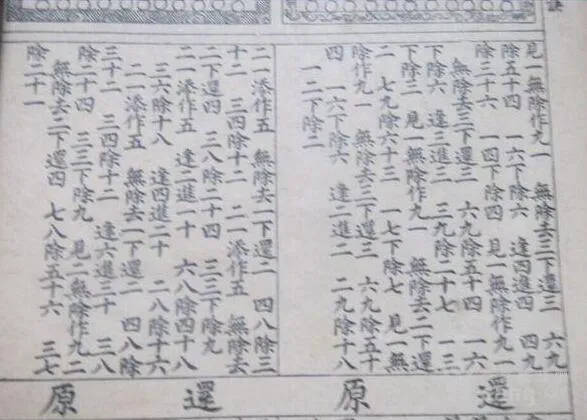 見一無除作九一 無除去三下還三 六九
除五十四 一六下除六 逢四進四 四九
除三十六 一四下除四 見一無除作九一
無除去三下還三 六九除五十四 一六
下除六 逢三進三 三九除二十七 一三
下除三 見一無除作九一 無除去二下還
二 七九除六十三 一七下除七 見一無
除作九一 無除去三下還三 六九除五十
四 一六下除六 逢二進二 二九除十八
一二下除二
二一添作五 無除去一下還二 四八除三
十二 三四除十二 二一添作五 無除去
二下還四 三八除二十四 三三下除九
二一添作五 逢二進一十 六八除四十八
三六除十八 逢四進二十 二八除十六
二一添作五 無除去一下還二 四八除
三十二 三四除十二 逢六進三十 三八
除二十四 三三下除九 見二無除作九二
無除去二下還四 七八除五十六 三七
除二十一
還原
還原